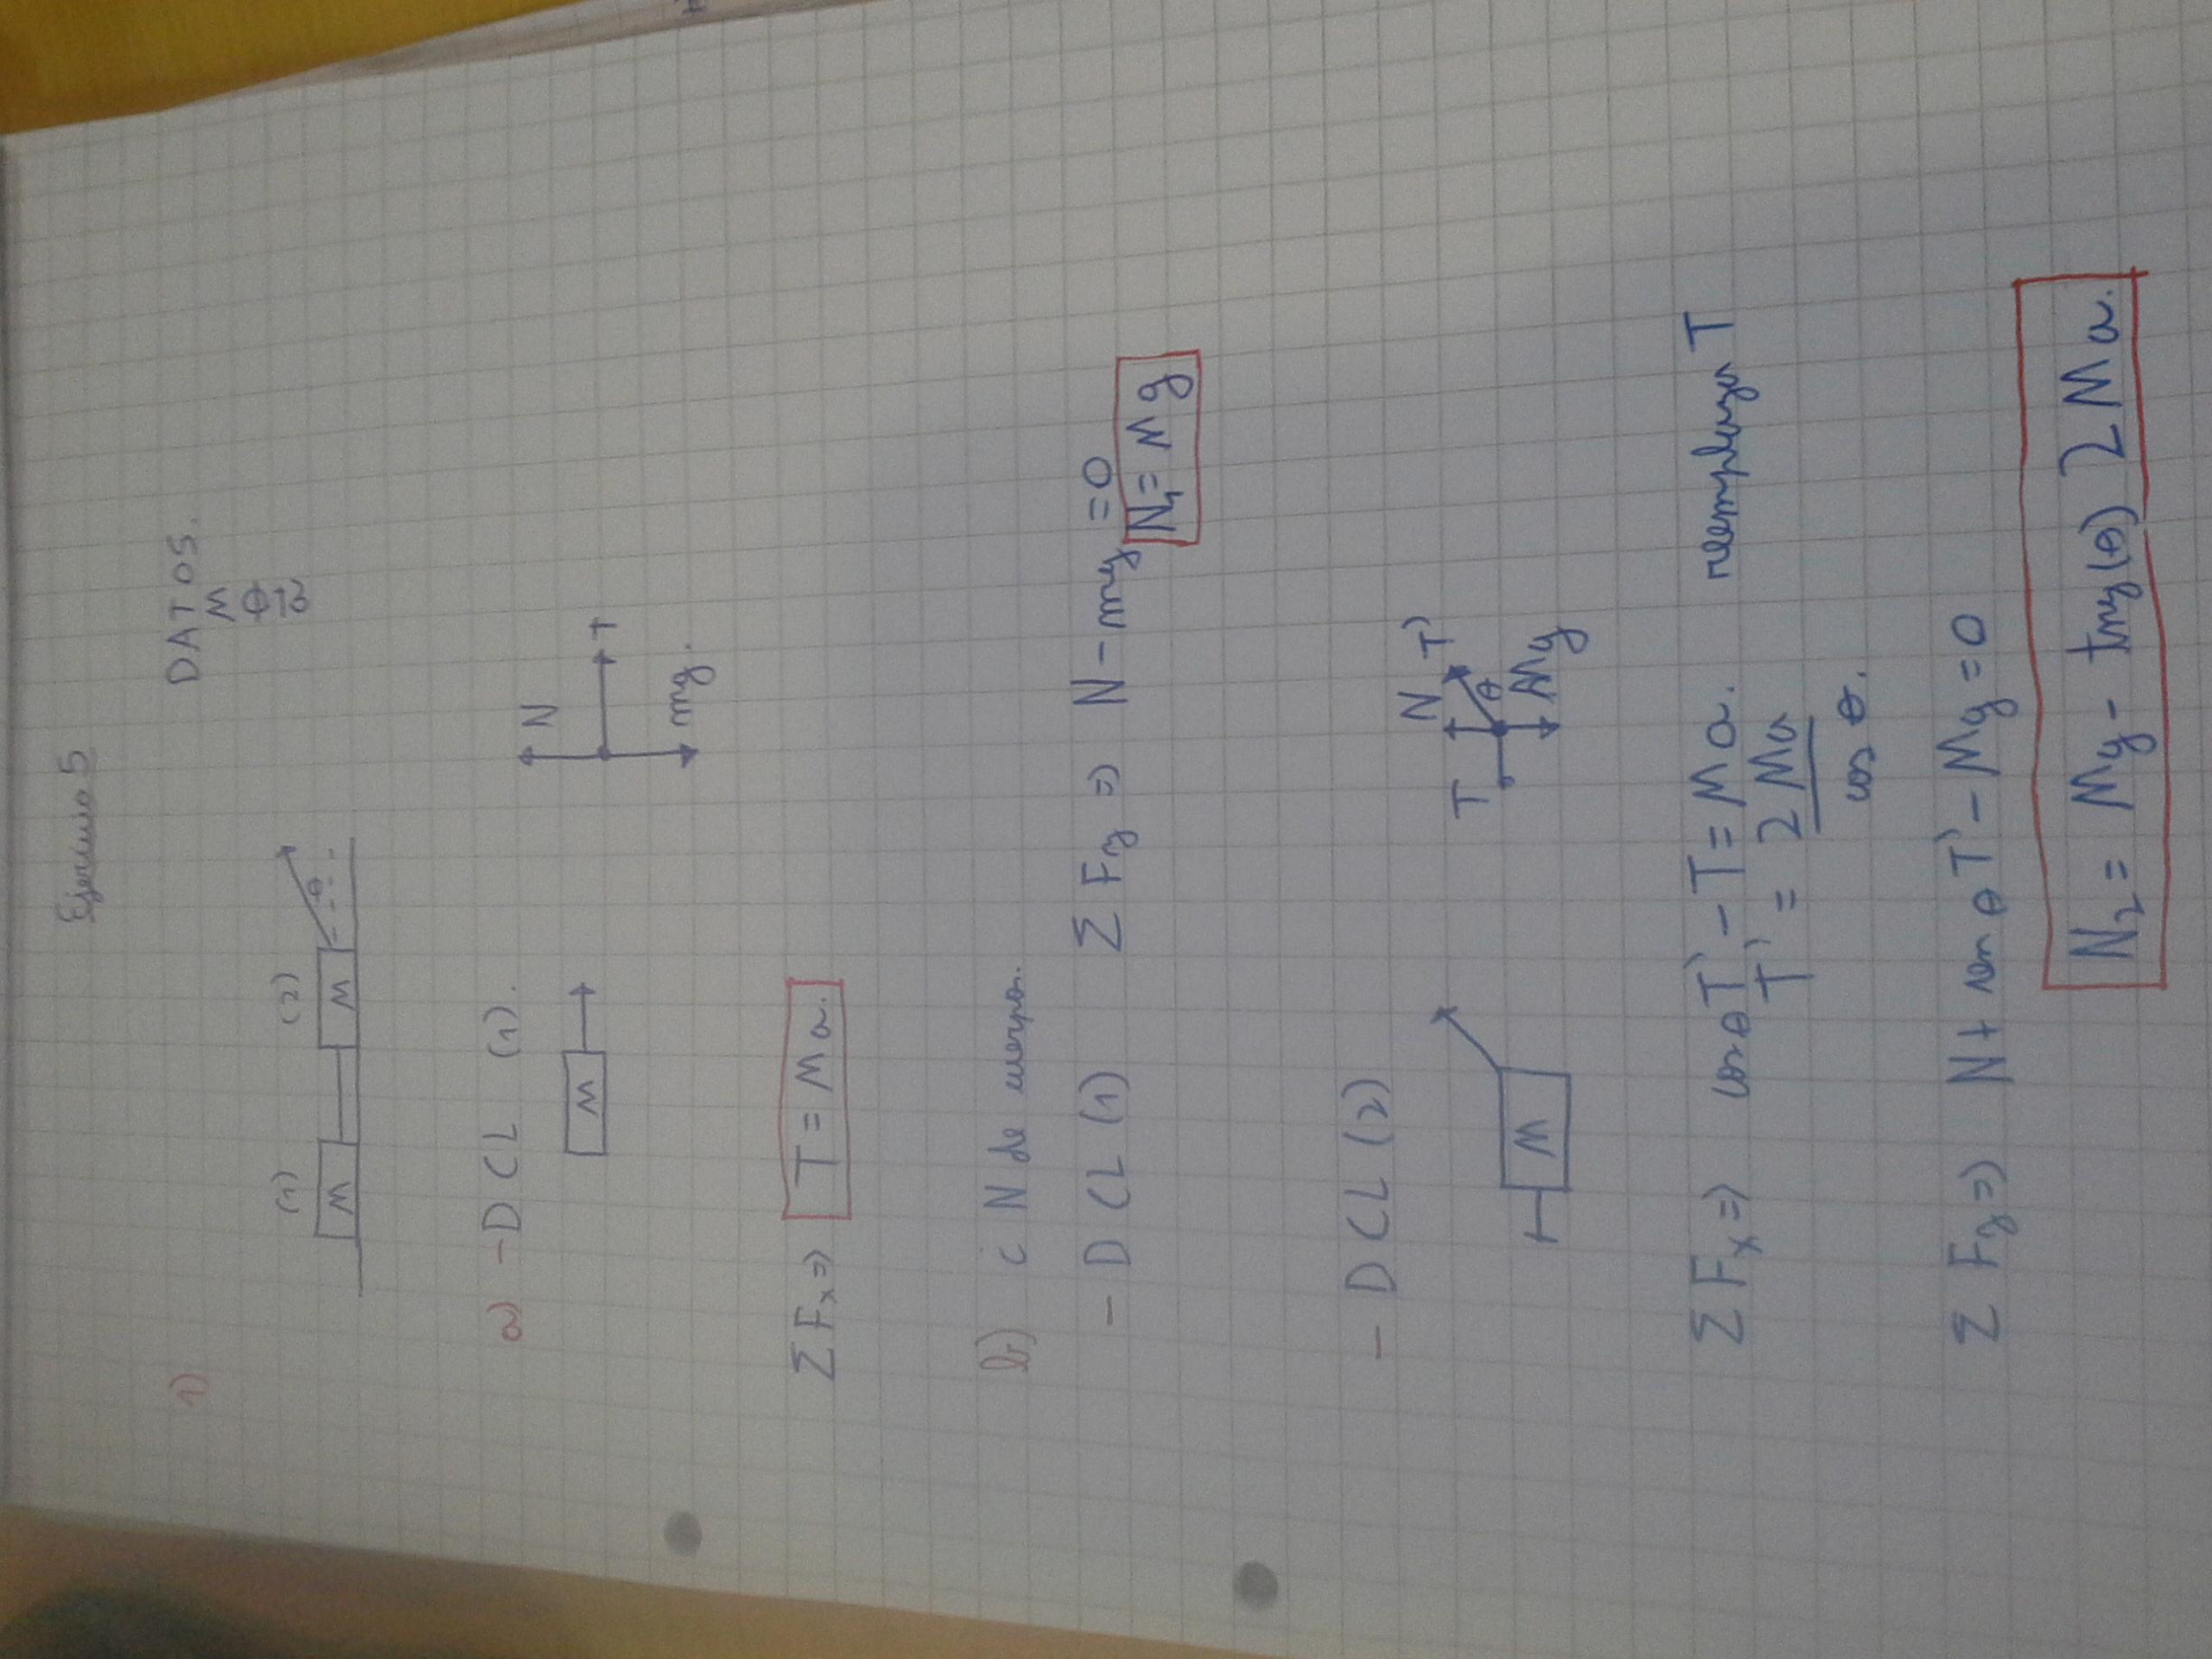 Ejercicio 5
1)
DATOS.
M
θ
a⃗
(1) (2)
M M θ
a) - DCL (1).
M
N
T
mg.
ΣFx => T = Ma.
b) ¿ N de cuerpo.
- DCL (1) ΣFy => N - mg = 0
N1 = Mg
- DCL (2)
M
T N T'
θ
Mg
ΣFx => cosθT' - T = Ma. reemplazar T
T' = 2Ma
cos θ.
ΣFy => N + sen θ T' - Mg = 0
N2 = Mg - tng(θ) 2Ma.